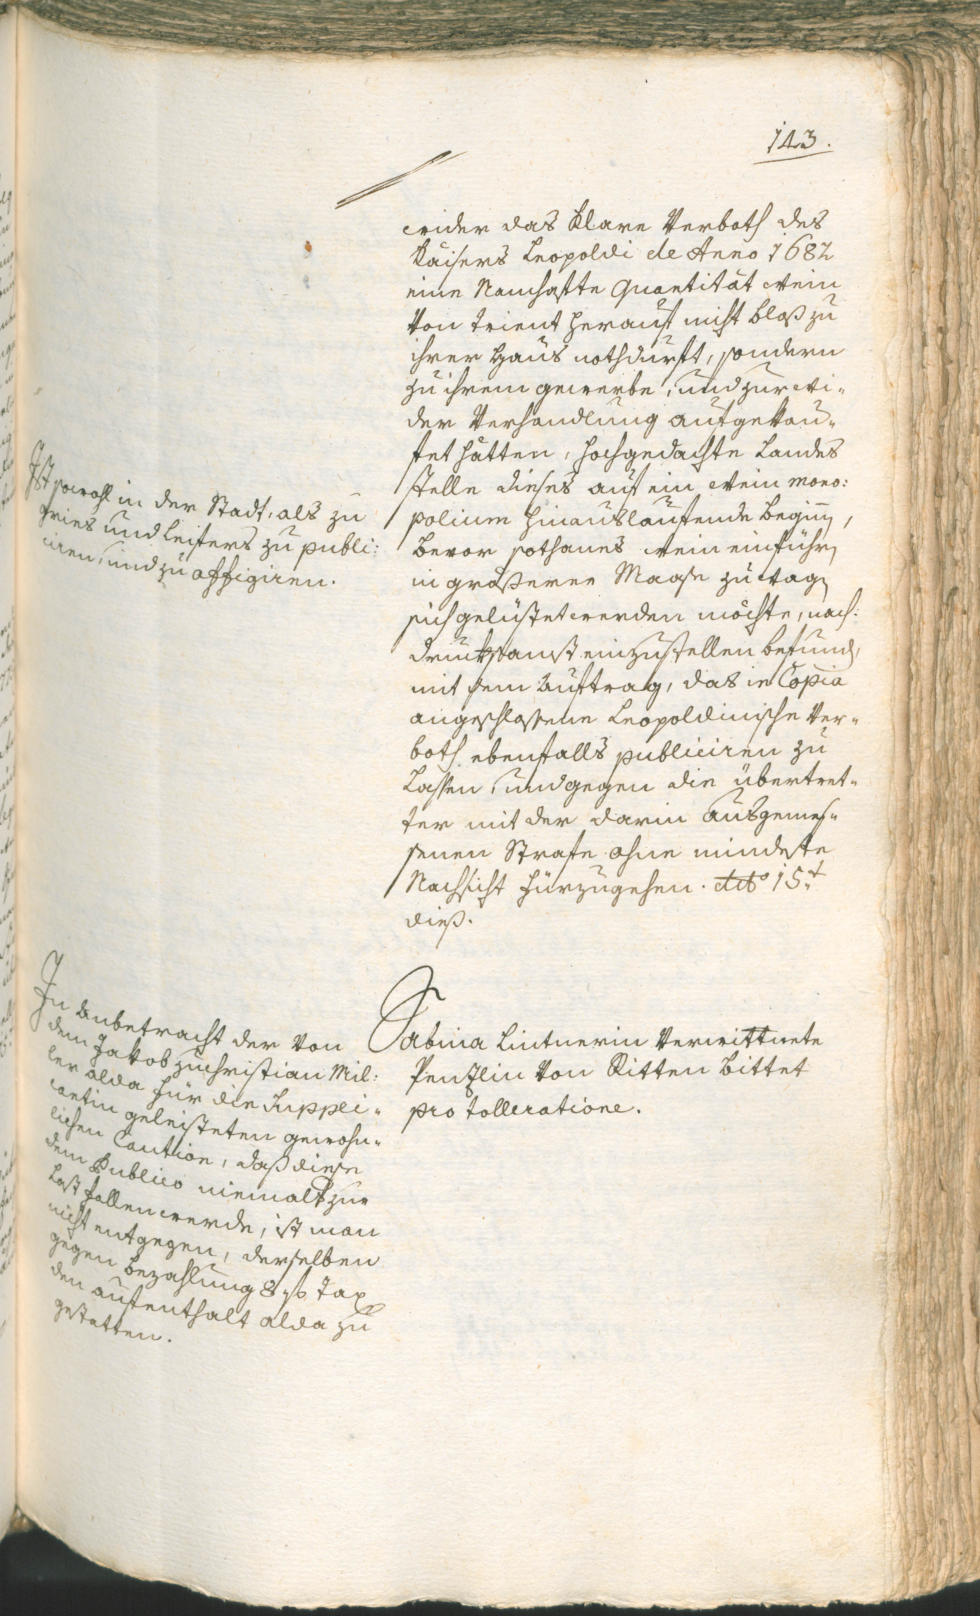 143.
wider das klare Verboth des
Kaisers Leopoldi de Anno 1682
eine Namhafte Quantität Wein
von Trient herauß nicht bloß zu
ihrer Haus nothdurft, sondern
zu ihrem gewerbe, und zur wi-
der Verhandlung aufgekau-
fet hätten, hochgedachte Landes
stelle dieses auf ein Wein mono:
polium hinauslaufende Begiñ,
bevor sothanes Wein einführ
in größerer Maase zu wag
sich gelüstet werden möchte, nach:
drucksamst einzustellen befund,
mit dem Auftrag, das in Copia
angeschlossene Leopoldinische Ver-
both ebenfalls publiciren zu
Lassen, und gegen die übertret-
ter mit der darin Ausgemes-
senen Strafe ohne mindeste
Nachsicht fürzugehen. dto 15t
dieß.
Ist sowohl in der Stadt, als zu
Gries und Leifers zu publi:
ciren, und zu affigiren.
Sabina Lintnerin Verwittwete
Penzlin von Ritten bittet
pro tolleratione.
In Anbetracht der von
dem Jakob Zuchristian Mil:
ler alda für die Suppli-
cantin geleisteten gewohn-
lichen Caution, daß diese
dem Publico niemals zur
Last fallen werde, ist man
nicht entgegen, derselben
gegen Bezahlung Tax
den aufenthalt alda zu
gestatten.